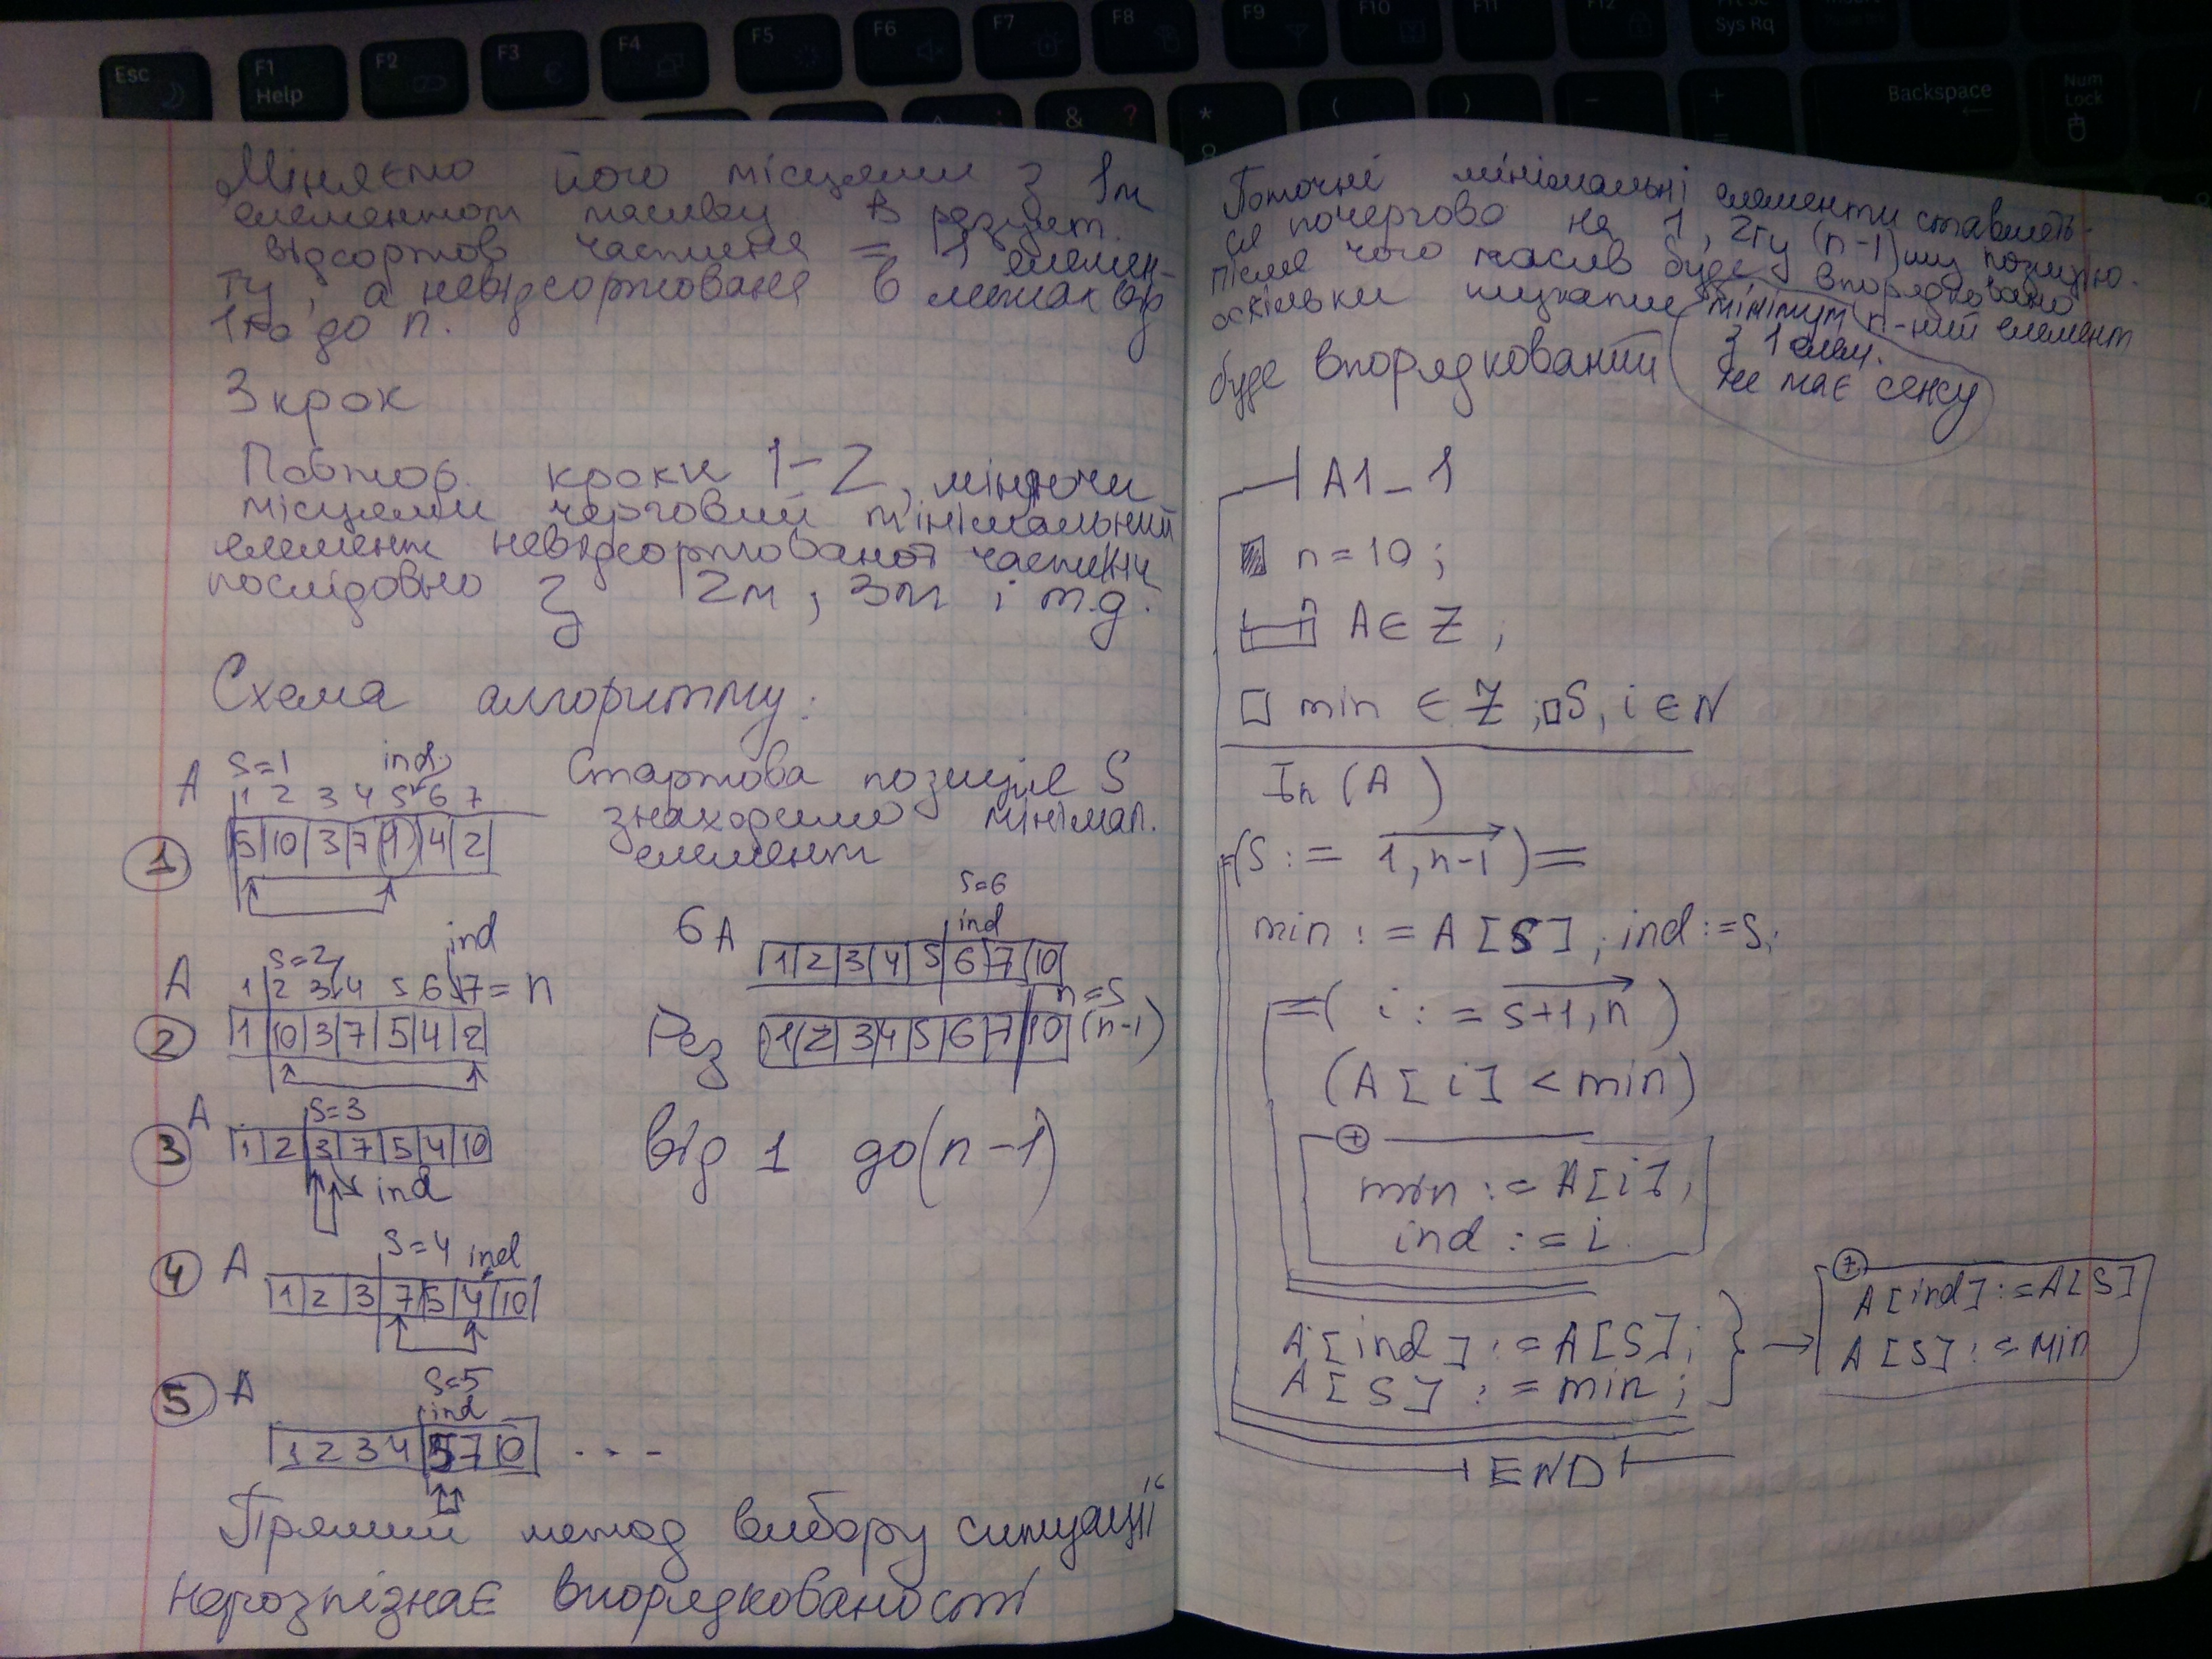 Esc
F1
Help
F2
F3
F4
F5
F6
F7
F8
F9
F10
F11
F12
Prt Sc
Sys Rq
&
?
*
8
(
)
-
+
=
Backspace
Num
Lock
/
Міняємо його місцями з 1м
елементом масиву. В результ.
відсортов частина = 1 елемен-
ту, а невідсортована в межах від
1го до n.
3 крок
Повтор. кроки 1-2, міняючи
місцями черговий мінімальний
елемент невідсортованої частини
послідовно з 2м, 3м і т.д.
Схема алгоритму:
S=1 ind
A 1 2 3 4 5 6 7
1 5 10 3 7 1 4 2
Стартова позиція S
знаходимо мінімал.
елемент
S=2 ind
A 1 2 3 4 5 6 7 = n
2 1 10 3 7 5 4 2
A S=3
3 1 2 3 7 5 4 10
ind
S=4 ind
4 A 1 2 3 7 5 4 10
5 A S=5
ind
1 2 3 4 5 7 10 . . -
S=6
ind
6 A 1 2 3 4 5 6 7 10
n=S
Рез 1 2 3 4 5 6 7 10 (n-1)
від 1 до (n-1)
Прямий метод вибору ситуації
нерозпізнає впорядкованості
Поточні мінімальні елементи ставлять-
ся почергово на 1, 2гу (n-1)шу позицію.
після чого масив буде впорядковано
оскільки шукати мінімум n-ний елемент
з 1 елем.
буде впорядкований не має сенсу
A1_1
n = 10 ;
n A ∈ Z ;
min ∈ Z ; S, i ∈ N
In (A)
(S := 1, n-1) =
min := A [S] ; ind := S;
=( i := S+1, n )
(A [i] < min)
+
min := A[i],
ind := i.
A [ind] := A[S];
A [S] := min ;
} →
+
A [ind] := A[S]
A [S] := min
END